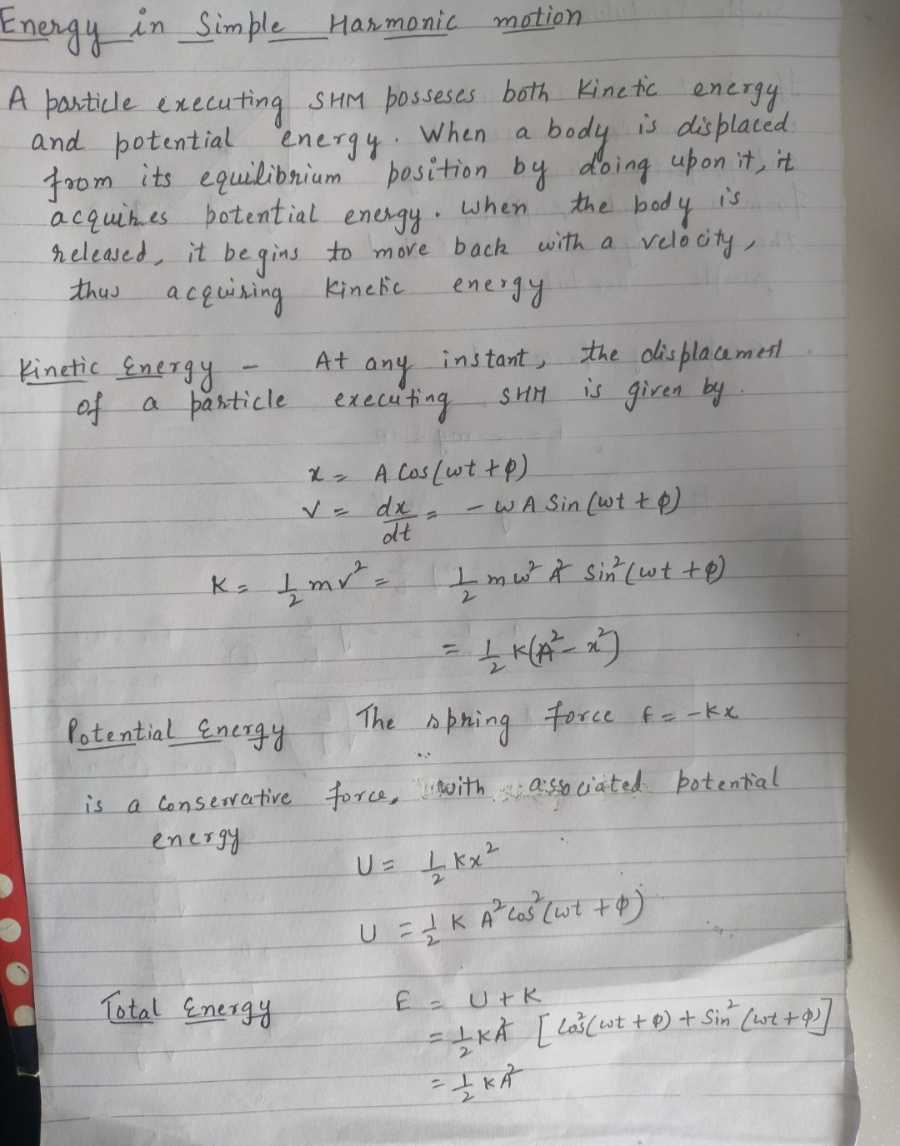 Energy in Simple Harmonic motion
A particle executing SHM posseses both Kinetic energy
and potential energy. When a body is displaced
from its equilibrium position by doing upon it, it
acquires potential energy. When the body is
released, it begins to move back with a velocity,
thus acquiring Kinetic energy
Kinetic Energy - At any instant, the displacement
of a particle executing SHM is given by.
x = A Cos(ωt + φ)
v = dx/dt = - ω A Sin (ωt + φ)
K = 1/2 mv² = 1/2 mω² A² Sin² (ωt + φ)
= 1/2 K(A² - x²)
Potential Energy The spring force F = -Kx
is a Conservative force, with associated potential
energy
U = 1/2 Kx²
U = 1/2 K A² Cos² (ωt + φ)
Total Energy E = U + K
= 1/2 KA² [Cos²(ωt + φ) + Sin² (ωt + φ)]
= 1/2 KA²